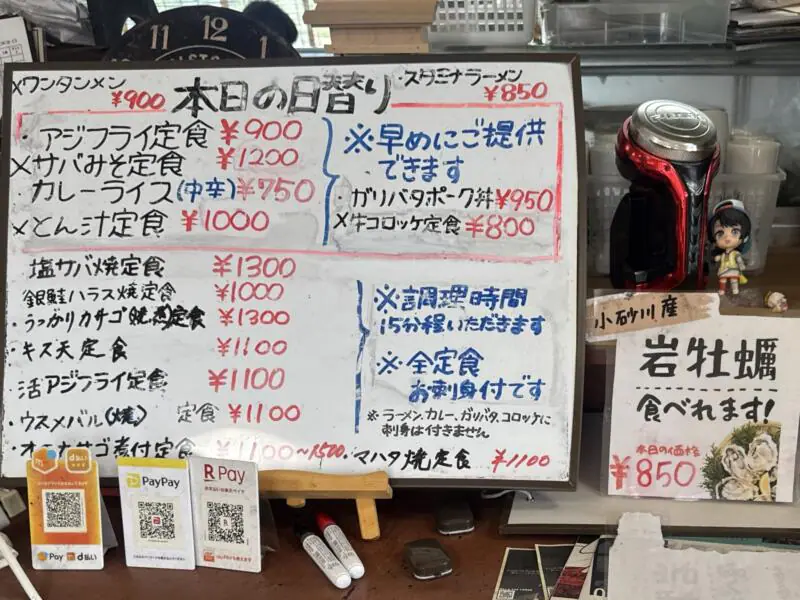 11 12 1
×ワンタンメン ¥900
本日の日替り
・スタミナラーメン ¥850
・アジフライ定食 ¥900
×サバみそ定食 ¥1200
カレーライス(中辛) ¥750
×とん汁定食 ¥1000
※早めにご提供
できます
・ガリバタポーク丼 ¥950
×牛コロッケ定食 ¥800
塩サバ焼定食 ¥1300
銀鮭ハラス焼定食 ¥1000
・うっかりカサゴ(焼、煮)定食 ¥1300
・キス天定食 ¥1100
・活アジフライ定食 ¥1100
・ウスメバル(焼) 定食 ¥1100
煮付定食 ¥1100~1500
※調理時間
15分程いただきます
※全定食
お刺身付です
※ラーメン、カレー、ガリバタ、コロッケに
刺身は付きません
・マハタ焼定食 ¥1100
小砂川産
岩牡蠣
食べれます!
本日の価格
¥850
Pay d払い
PayPay
R Pay